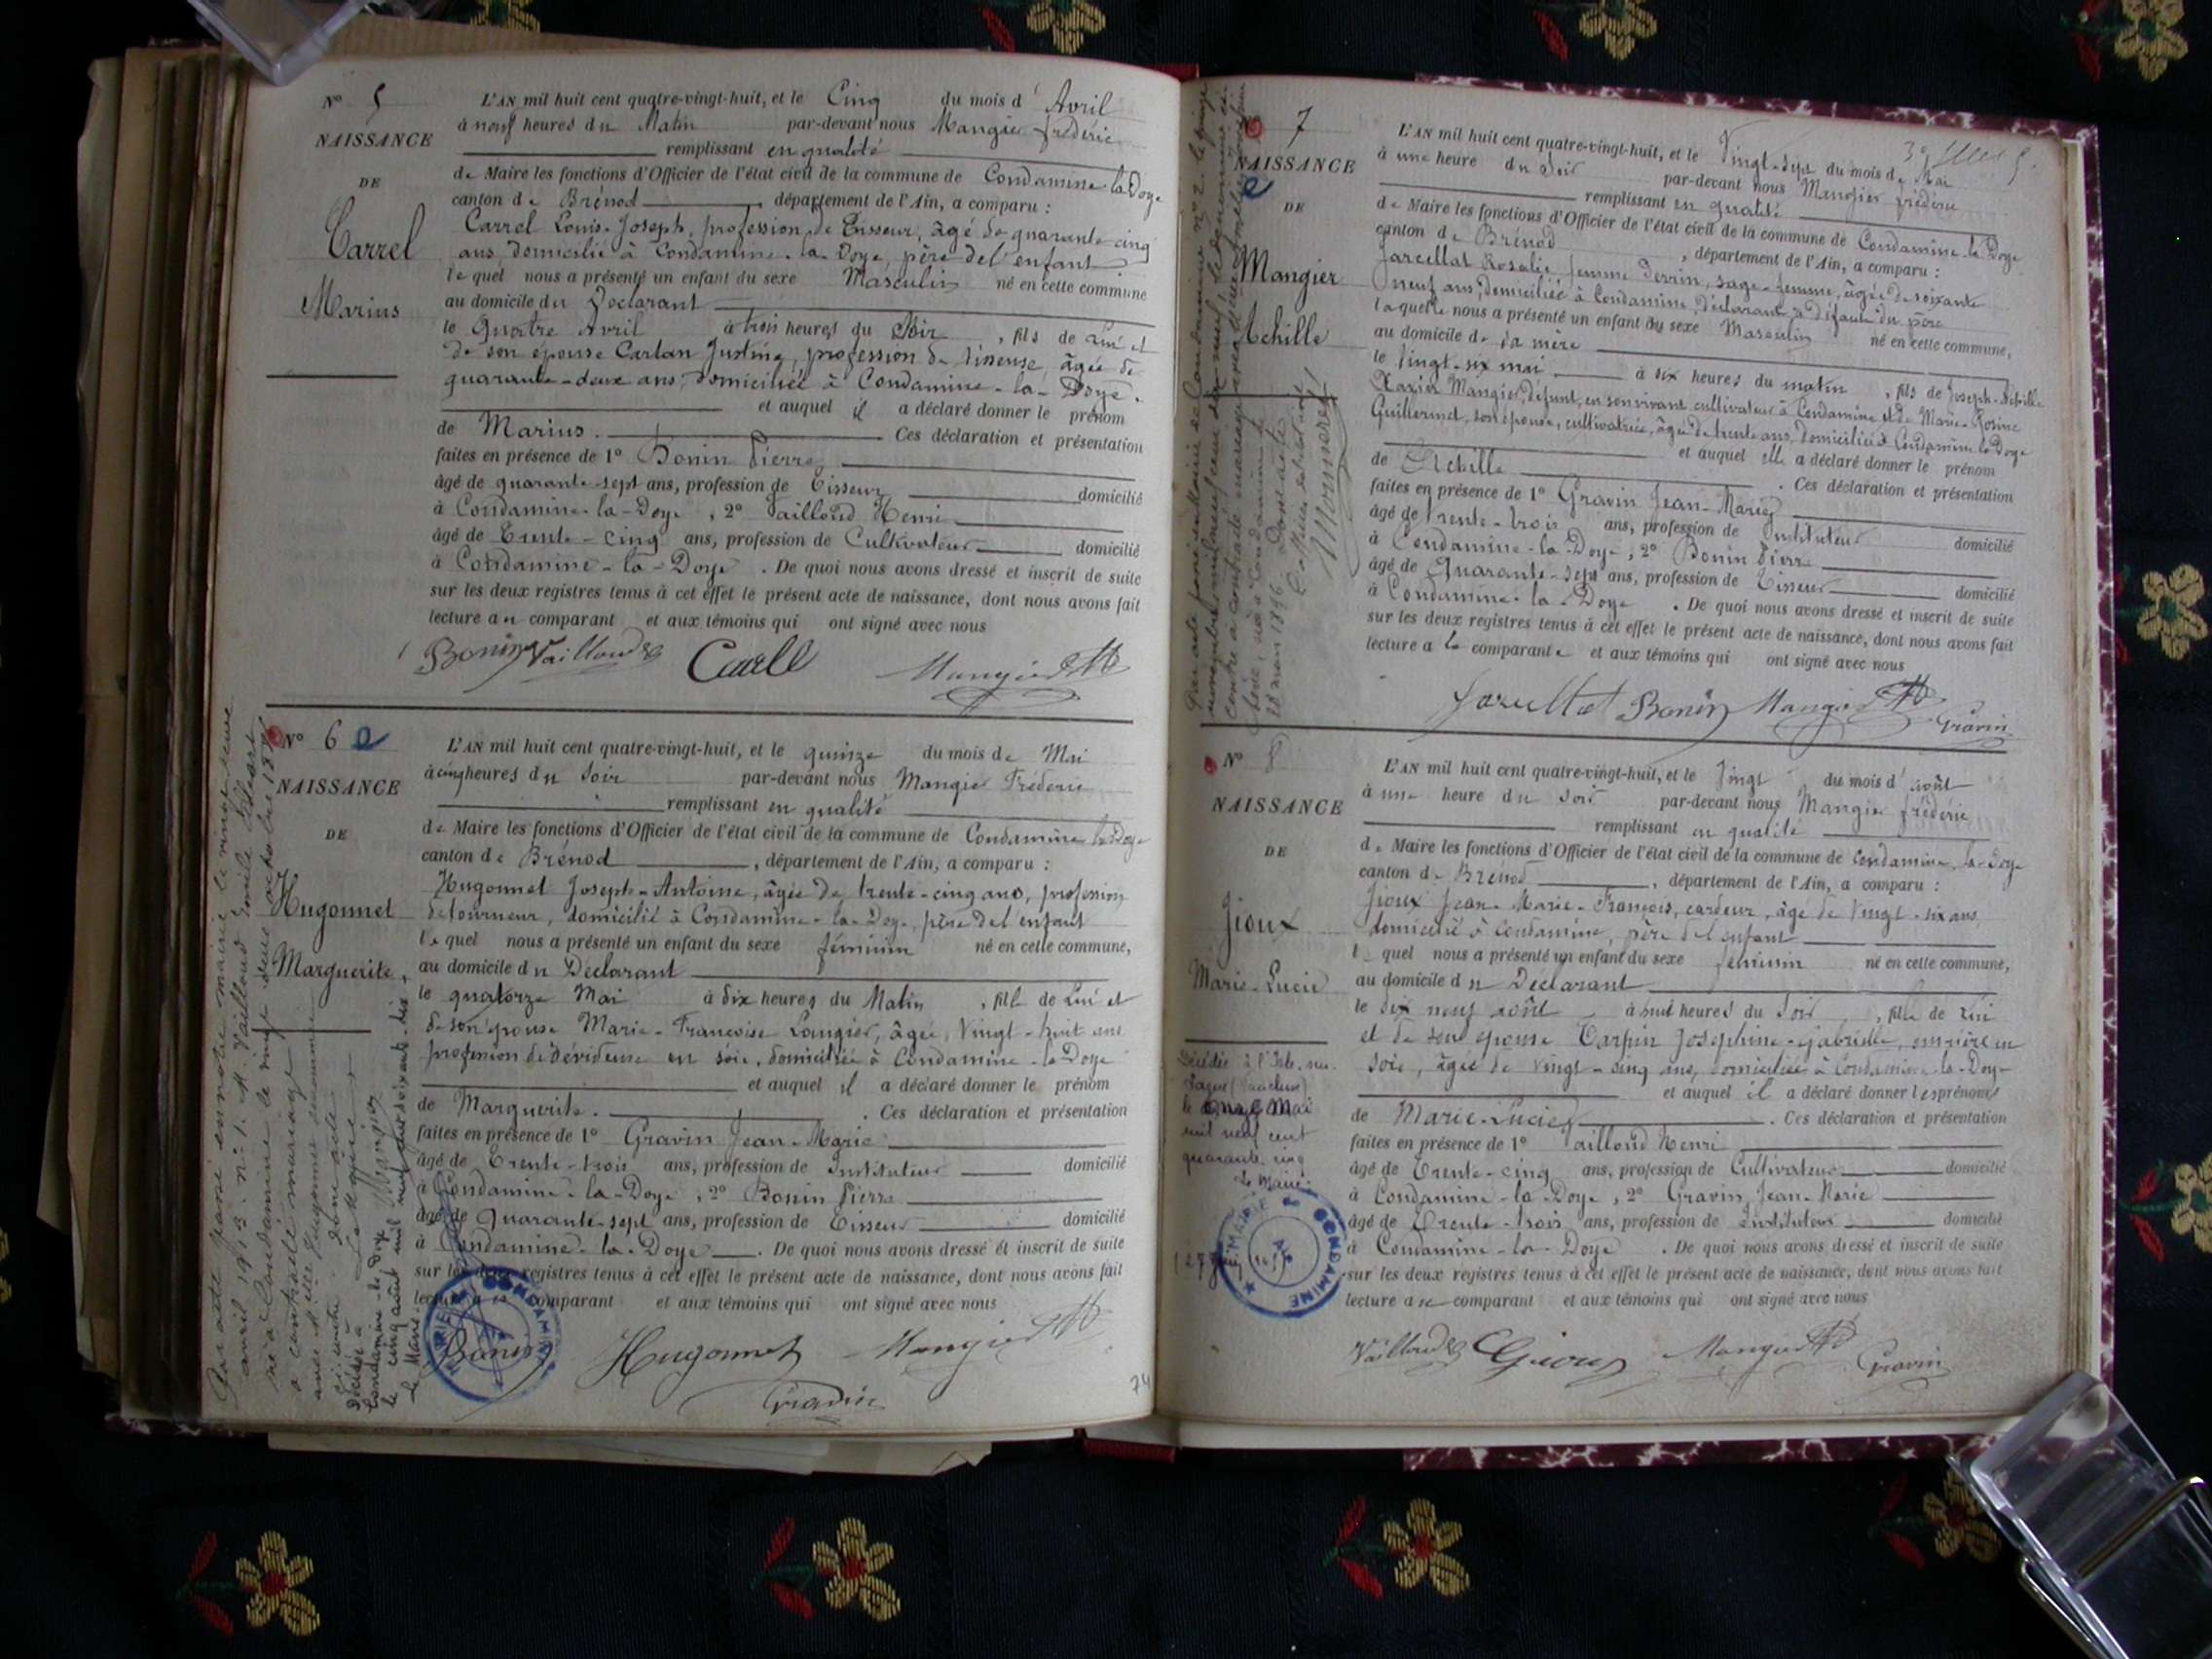 N° 5
NAISSANCE
DE
Carrel
Marius
L'AN mil huit cent quatre-vingt-huit, et le Cinq du mois d' Avril
à neuf heures du Matin par-devant nous Mangier Frédéric
remplissant en qualité
de Maire les fonctions d'Officier de l'état civil de la commune de Condamine-la-Doye
canton de Brénod, département de l'Ain, a comparu :
Carrel Louis-Joseph, profession de Tisseur, âgé de quarante cinq
ans, domicilié à Condamine-la-Doye, père de l'enfant
lequel nous a présenté un enfant du sexe Masculin né en cette commune
au domicile du Déclarant
le Quatre Avril à trois heures du Soir, fils de Lui et
de son épouse Carlan Justine, profession de tisseuse, âgée de
quarante-deux ans, domiciliée à Condamine-la-Doye.
et auquel il a déclaré donner le prénom
de Marius. Ces déclaration et présentation
faites en présence de 1° Bonin Pierre
âgé de quarante-sept ans, profession de Tisseur domicilié
à Condamine-la-Doye, 2° Vailloud Henri
âgé de Trente-cinq ans, profession de Cultivateur domicilié
à Condamine-la-Doye. De quoi nous avons dressé et inscrit de suite
sur les deux registres tenus à cet effet le présent acte de naissance, dont nous avons fait
lecture au comparant et aux témoins qui ont signé avec nous
Bonin Vailloud Carrel Mangier
N° 6
NAISSANCE
DE
Hugonnet
Marguerite
L'AN mil huit cent quatre-vingt-huit, et le quinze du mois de Mai
à cinq heures du Soir par-devant nous Mangier Frédéric
remplissant en qualité
de Maire les fonctions d'Officier de l'état civil de la commune de Condamine la Doye
canton de Brénod, département de l'Ain, a comparu :
Hugonnet Joseph-Antoine, âgée de trente-cinq ans, profession
de tourneur, domicilié à Condamine-la-Doye, père de l'enfant
lequel nous a présenté un enfant du sexe féminin né en cette commune,
au domicile du Déclarant
le quatorze Mai à dix heures du Matin, fille de Lui et
de son épouse Marie-Françoise Laugier, âgée, Vingt-huit ans
profession de dévideuse en soie, domiciliée à Condamine-la-Doye
et auquel il a déclaré donner le prénom
de Marguerite. Ces déclaration et présentation
faites en présence de 1° Gravin Jean-Marie
âgé de Trente-trois ans, profession de Instituteur domicilié
à Condamine-la-Doye, 2° Bonin Pierre
âgé de Quarante-sept ans, profession de Tisseur domicilié
à Condamine-la-Doye. De quoi nous avons dressé et inscrit de suite
sur les deux registres tenus à cet effet le présent acte de naissance, dont nous avons fait
lecture au comparant et aux témoins qui ont signé avec nous
Bonin Hugonnet Mangier
Gravin
Par acte passé en notre mairie le vingt-
avril 1912 n° 1. M. Vailloud Emile
né à Condamine le vingt deux octobre
a contracté mariage
avec Melle Hugonnet
ci contre. Dont acte
Le Maire
Mangier
Décédée à
Condamine la Doye
le cinq août mil neuf cent soixante-dix
le Maire
74
N° 7
NAISSANCE
DE
Mangier
Achille
L'AN mil huit cent quatre-vingt-huit, et le Vingt-sept du mois de Mai
à une heure du Soir par-devant nous Mangier Frédéric
remplissant en qualité
de Maire les fonctions d'Officier de l'état civil de la commune de Condamine la Doye
canton de Brénod, département de l'Ain, a comparu :
Jarcellat Rosalie femme Perrin, sage-femme, âgée de soixante
neuf ans, domiciliée à Condamine, déclarant à défaut du père
laquelle nous a présenté un enfant du sexe Masculin né en cette commune,
au domicile de sa mère
le Vingt-six mai à six heures du matin, fils de Joseph-Achille
Xavier Mangier, défunt, en son vivant cultivateur à Condamine et de Marie-Rosine
Guillermet, son épouse, cultivatrice, âgée de trente ans, domiciliée à Condamine la Doye
et auquel elle a déclaré donner le prénom
de Achille. Ces déclaration et présentation
faites en présence de 1° Gravin Jean-Marie
âgé de trente-trois ans, profession de Instituteur domicilié
à Condamine-la-Doye, 2° Bonin Pierre
âgé de Quarante-sept ans, profession de Tisseur domicilié
à Condamine-la-Doye. De quoi nous avons dressé et inscrit de suite
sur les deux registres tenus à cet effet le présent acte de naissance, dont nous avons fait
lecture a la comparante et aux témoins qui ont signé avec nous
Jarcellat Bonin Mangier
Gravin
N° 8
NAISSANCE
DE
Jioux
Marie-Lucie
L'AN mil huit cent quatre-vingt-huit, et le Vingt du mois d' août
à une heure du soir par-devant nous Mangier Frédéric
remplissant en qualité
de Maire les fonctions d'Officier de l'état civil de la commune de Condamine-la-Doye
canton de Brénod, département de l'Ain, a comparu :
Jioux Jean-Marie-François, cardeur, âgé de Vingt-six ans,
domicilié à Condamine, père de l'enfant
lequel nous a présenté un enfant du sexe féminin né en cette commune,
au domicile du Déclarant
le dix neuf août à huit heures du Soir, fille de Lui
et de son épouse Carpin Joséphine-Gabrielle, ouvrière en
soie, âgée de vingt-cinq ans, domiciliée à Condamine-la-Doye
et auquel il a déclaré donner les prénoms
de Marie-Lucie. Ces déclaration et présentation
faites en présence de 1° Vailloud Henri
âgé de Trente-cinq ans, profession de Cultivateur domicilié
à Condamine-la-Doye, 2° Gravin Jean-Marie
âgé de Trente-trois ans, profession de Instituteur domicilié
à Condamine-la-Doye. De quoi nous avons dressé et inscrit de suite
sur les deux registres tenus à cet effet le présent acte de naissance, dont nous avons fait
lecture au comparant et aux témoins qui ont signé avec nous
Vailloud Gioux Mangier Gravin
Décédée à l'Isle-sur-
Sorgue (Vaucluse)
le onze Mai
mil neuf cent
quarante cinq
Le Maire
MAIRIE de CONDAMINE
AIN